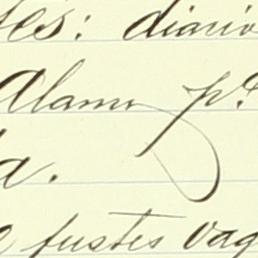 les: diario
Alamo p.ª
da.
e fustes vag